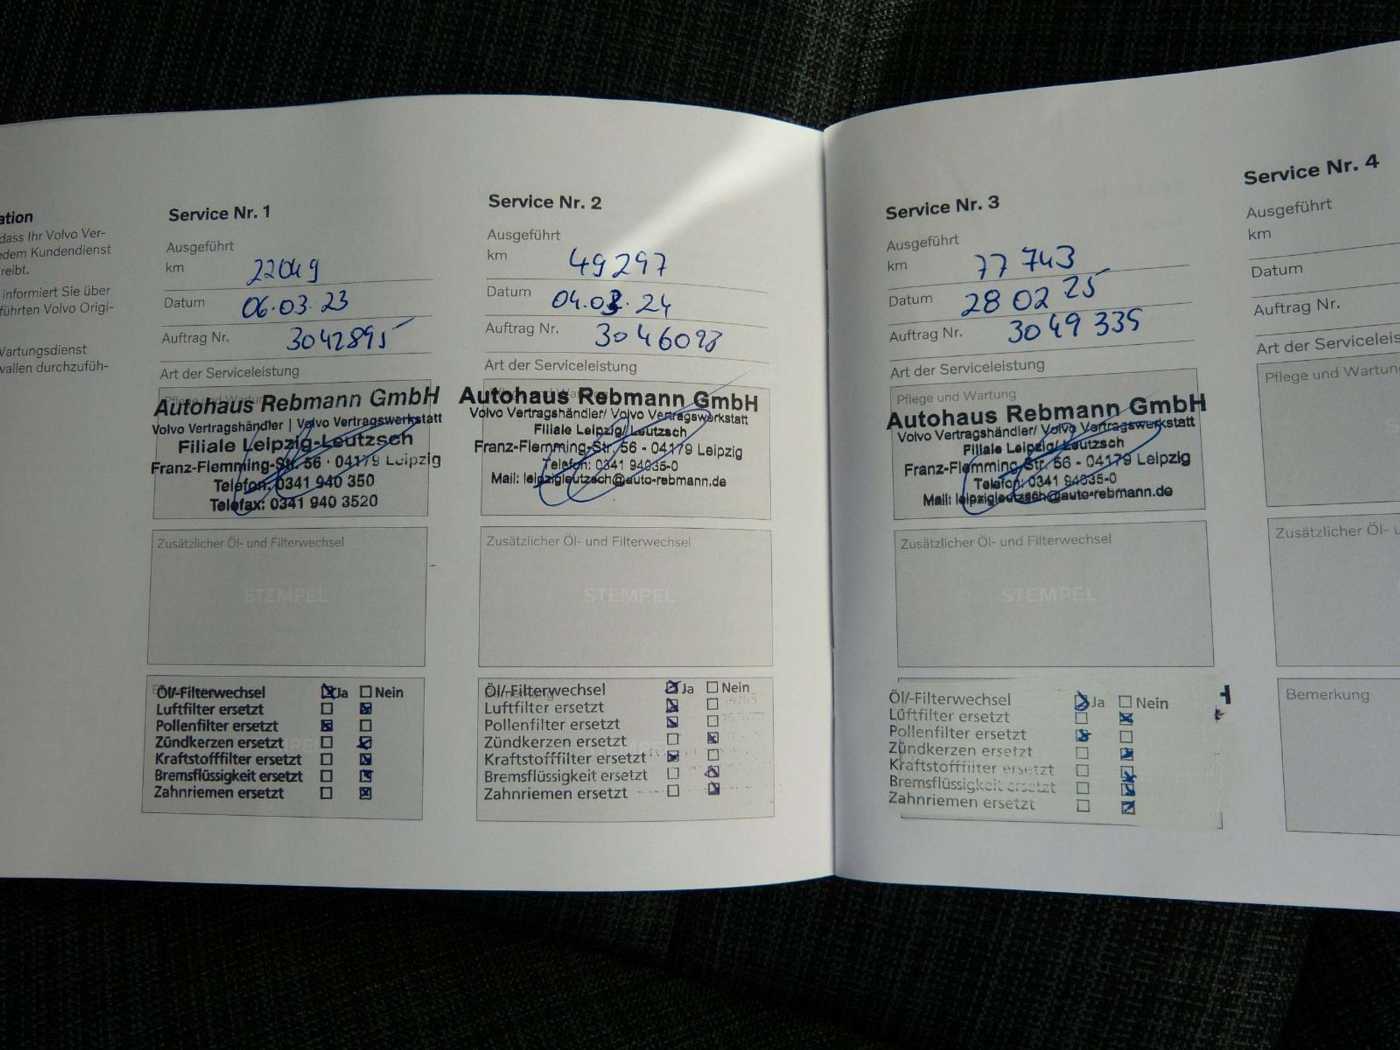 ation
dass Ihr Volvo Ver-
edem Kundendienst
reibt.
informiert Sie über
führten Volvo Origi-
Wartungsdienst
vallen durchzufüh-
Service Nr. 1
Ausgeführt
km 22049
Datum 06.03.23
Auftrag Nr. 3042895
Art der Serviceleistung
Autohaus Rebmann GmbH
Volvo Vertragshändler | Volvo Vertragswerkstatt
Filiale Leipzig-Leutzsch
Franz-Flemming-Str. 56 · 04179 Leipzig
Telefon: 0341 940 350
Telefax: 0341 940 3520
Zusätzlicher Öl- und Filterwechsel
STEMPEL
Öl/-Filterwechsel Ja Nein
Luftfilter ersetzt
Pollenfilter ersetzt
Zündkerzen ersetzt
Kraftstofffilter ersetzt
Bremsflüssigkeit ersetzt
Zahnriemen ersetzt
Service Nr. 2
Ausgeführt
km 49297
Datum 04.03.24
Auftrag Nr. 3046093
Art der Serviceleistung
Autohaus Rebmann GmbH
Volvo Vertragshändler/ Volvo Vertragswerkstatt
Filiale Leipzig/ Leutzsch
Franz-Flemming-Str. 56 - 04179 Leipzig
Telefon: 0341 94035-0
Mail: leipzigleutzsch@auto-rebmann.de
Zusätzlicher Öl- und Filterwechsel
STEMPEL
Öl/-Filterwechsel Ja Nein
Luftfilter ersetzt
Pollenfilter ersetzt
Zündkerzen ersetzt
Kraftstofffilter ersetzt
Bremsflüssigkeit ersetzt
Zahnriemen ersetzt
Service Nr. 3
Ausgeführt
km 77743
Datum 28 02 25
Auftrag Nr. 3049335
Art der Serviceleistung
Pflege und Wartung
Autohaus Rebmann GmbH
Volvo Vertragshändler/ Volvo Vertragswerkstatt
Filiale Leipzig/ Leutzsch
Franz-Flemming-Str. 56 - 04179 Leipzig
Telefon: 0341 94035-0
Mail: leipzigleutzsch@auto-rebmann.de
Zusätzlicher Öl- und Filterwechsel
STEMPEL
Öl/-Filterwechsel Ja Nein
Luftfilter ersetzt
Pollenfilter ersetzt
Zündkerzen ersetzt
Kraftstofffilter ersetzt
Bremsflüssigkeit ersetzt
Zahnriemen ersetzt
Service Nr. 4
Ausgeführt
km
Datum
Auftrag Nr.
Art der Serviceleis
Pflege und Wartung
Zusätzlicher Öl- u
Bemerkung